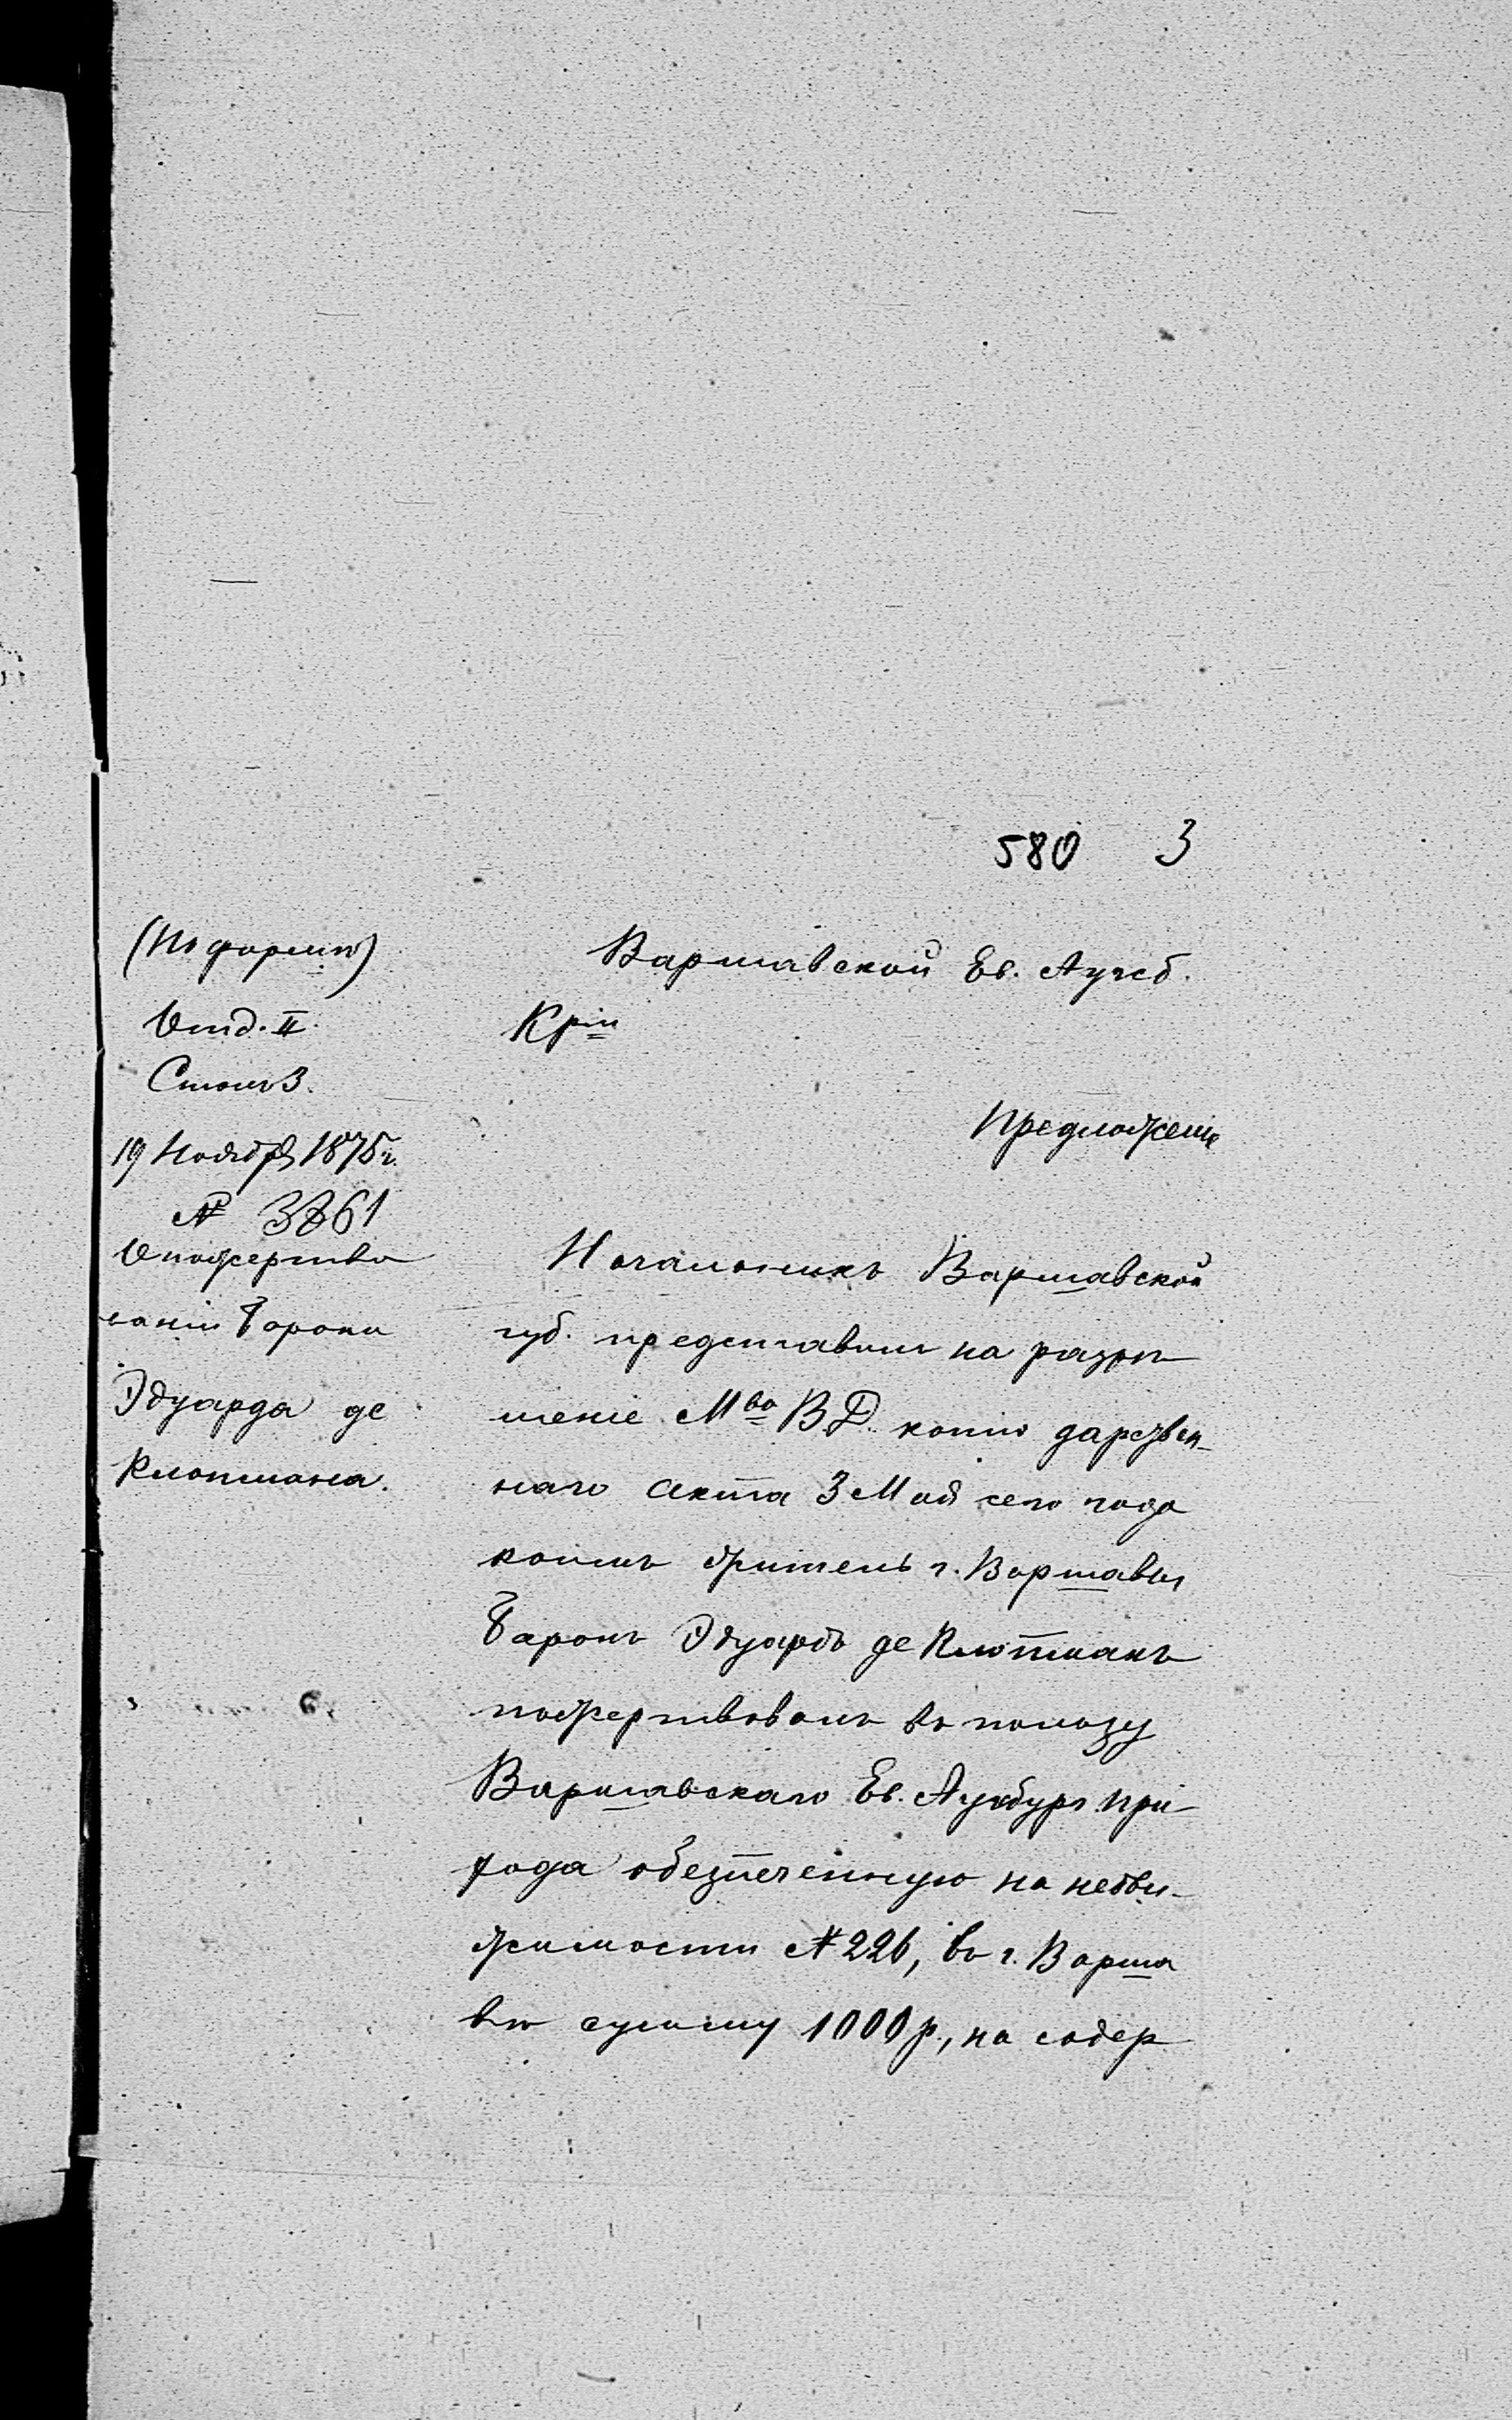 580 3
(По формѣ)
Отд. II.
Столъ 3.
19 Ноября 1875 г.
№ 3861
О пожертво
ваніи Барона
Эдуарда де
Клопмана.
Варшавской Ев. Аугсб.
Кріи
Предложеніе
Начальникъ Варшавской
губ. представилъ на разрѣ
шеніе Мва В.Д. копію дарствен-
наго акта 3 Мая сего года
коимъ житель г. Варшавы
Баронъ Эдуардъ де Клопманъ
пожертвовалъ въ пользу
Варшавскаго Ев. Аугсбург. при-
хода обезпеченную на недви-
жимости № 226, въ г. Варша
вѣ сумму 1000 р., на содер